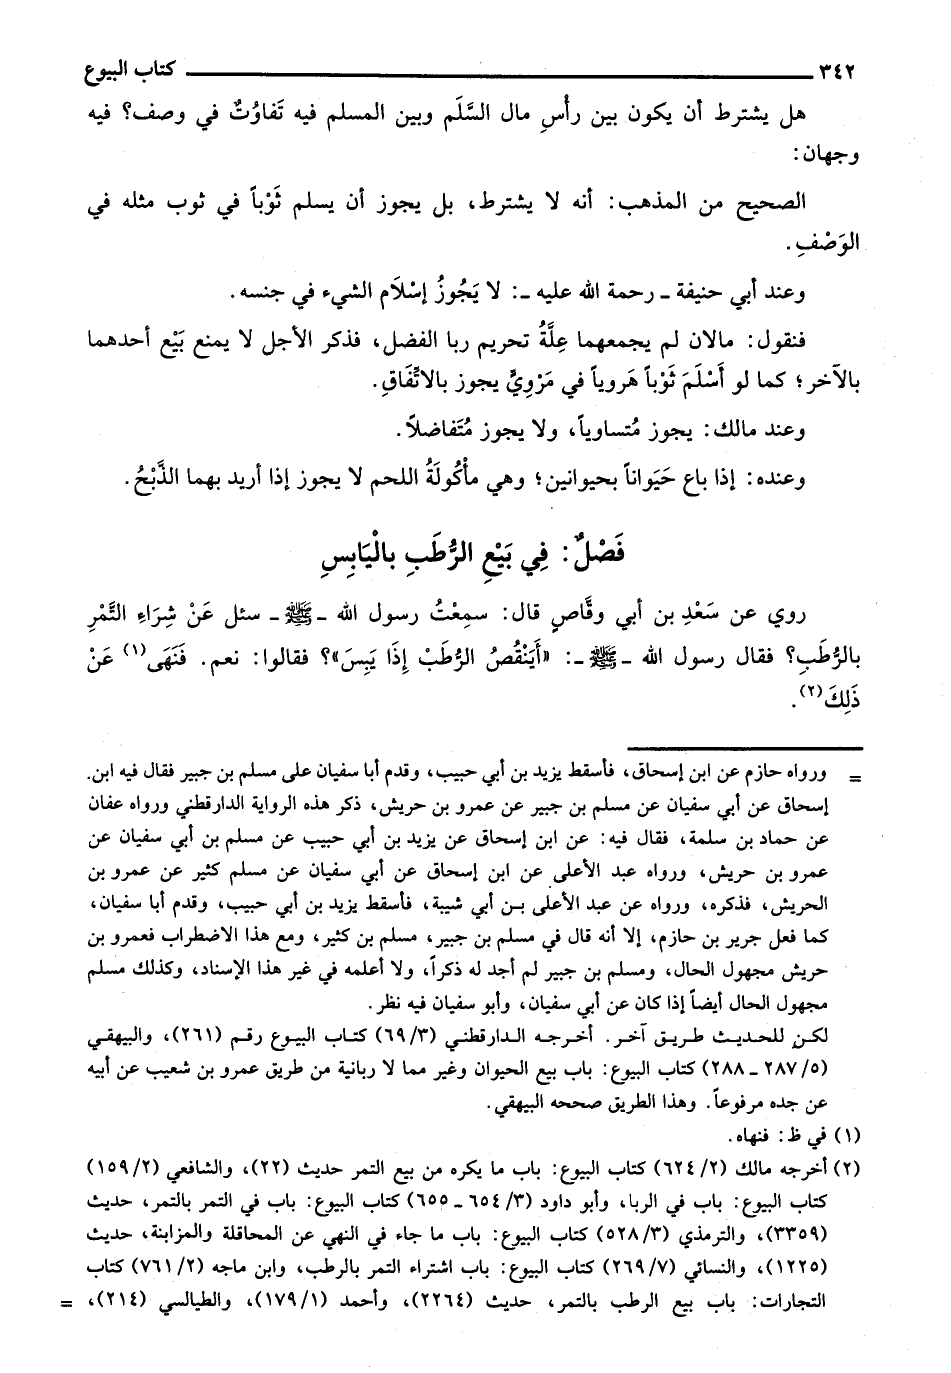 ٣٤٢ كتاب البيوع
هل يشترط أن يكون بين رأْسِ مال السَّلَم وبين المسلم فيه تَفاوُتٌ في وصف؟ فيه
وجهان:
الصحيح من المذهب: أنه لا يشترط، بل يجوز أن يسلم ثَوْباً في ثوب مثله في
الوَصْفِ.
وعند أبي حنيفة ـ رحمة الله عليه ـ: لا يَجُوزُ إسْلَام الشيء في جنسه.
فنقول: مالان لم يجمعهما عِلَّةُ تحريم ربا الفضل، فذكر الأجل لا يمنع بَيْع أحدهما
بالآخر؛ كما لو أَسْلَمَ ثَوْباً هَروياً في مَرْوِيٍّ يجوز بالاتِّفَاقِ.
وعند مالك: يجوز مُتساوياً، ولا يجوز مُتَفاضلاً.
وعنده: إذا باع حَيَواناً بحيوانين؛ وهي مأْكُولَةُ اللحم لا يجوز إذا أريد بهما الذَّبْحُ.
فَصْلٌ: فِي بَيْعِ الرُّطَبِ بالْيَابِسِ
روي عن سَعْدِ بن أبي وقَّاصٍ قال: سمِعْتُ رسول الله ـ ﷺ ـ سئل عَنْ شِرَاءِ التَّمْرِ
بالرُّطَبِ؟ فقال رسول الله ـ ﷺ ـ: «أَيَنْقُصُ الرُّطَبْ إِذَا يَبِسَ»؟ فقالوا: نعم. فَنَهَى(١) عَنْ
ذَلِكَ(٢).
= ورواه حازم عن ابن إسحاق، فأسقط يزيد بن أبي حبيب، وقدم أبا سفيان على مسلم بن جبير فقال فيه ابن.
إسحاق عن أبي سفيان عن مسلم بن جبير عن عمرو بن حريش، ذكر هذه الرواية الدارقطني ورواه عفان
عن حماد بن سلمة، فقال فيه: عن ابن إسحاق عن يزيد بن أبي حبيب عن مسلم بن أبي سفيان عن
عمرو بن حريش، ورواه عبد الأعلى عن ابن إسحاق عن أبي سفيان عن مسلم كثير عن عمرو بن
الحريش، فذكره، ورواه عن عبد الأعلى بـن أبي شيبة، فأسقط يزيد بن أبي حبيب، وقدم أبا سفيان،
كما فعل جرير بن حازم، إلا أنه قال في مسلم بن جبير، مسلم بن كثير، ومع هذا الاضطراب فعمرو بن
حريش مجهول الحال، ومسلم بن جبير لم أجد له ذكراً، ولا أعلمه في غير هذا الإسناد، وكذلك مسلم
مجهول الحال أيضاً إذا كان عن أبي سفيان، وأبو سفيان فيه نظر.
لكن للحديث طريق آخر. أخرجه الدارقطني (٦٩/٣) كتاب البيوع رقم (٢٦١)، والبيهقي
(٢٨٧/٥ ـ ٢٨٨) كتاب البيوع: باب بيع الحيوان وغير مما لا ربانية من طريق عمرو بن شعيب عن أبيه
عن جده مرفوعاً. وهذا الطريق صححه البيهقي.
(١) في ظ: فنهاه.
(٢) أخرجه مالك (٦٢٤/٢) كتاب البيوع: باب ما يكره من بيع التمر حديث (٢٢)، والشافعي (١٥٩/٢)
كتاب البيوع: باب في الربا، وأبو داود (٦٥٤/٣ ـ ٦٥٥) كتاب البيوع: باب في التمر بالتمر، حديث
(٣٣٥٩)، والترمذي (٥٢٨/٣) كتاب البيوع: باب ما جاء في النهي عن المحاقلة والمزابنة، حديث
(١٢٢٥)، والنسائي (٢٦٩/٧) كتاب البيوع: باب اشتراء التمر بالرطب، وابن ماجه (٧٦١/٢) كتاب
التجارات: باب بيع الرطب بالتمر، حديث (٢٢٦٤)، وأحمد (١٧٩/١)، والطيالسي (٢١٤)، =